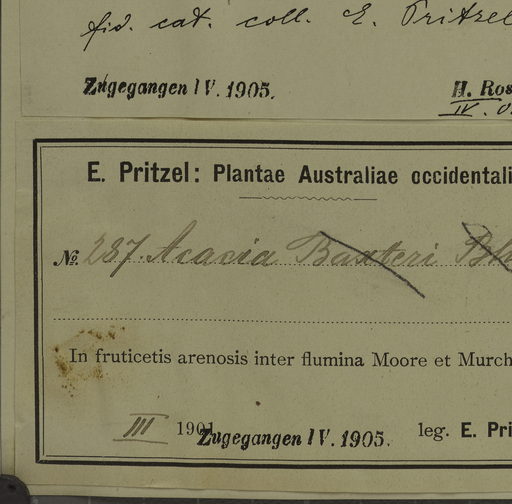 fid. cat. coll. E. Pritzel
Zugegangen IV. 1905.
H. Ros
IV. 0
E. Pritzel: Plantae Australiae occidentali
№ 287. Acacia Baxteri
In fruticetis arenosis inter flumina Moore et Murch
III 1901
Zugegangen IV. 1905.
leg. E. Pri